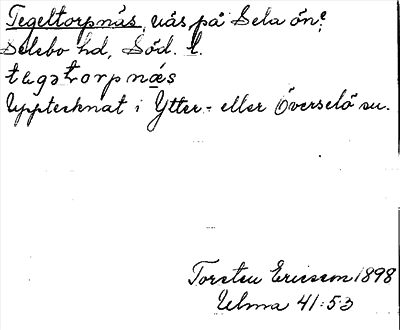 Tegeltorpnäs, näs på Sela ön?
Selebo hd, Söd. l.
tegətorpnǽs
Upptecknat i Ytter- eller Överselö sn.
Torsten Ericsson 1898
Ulma 41:53